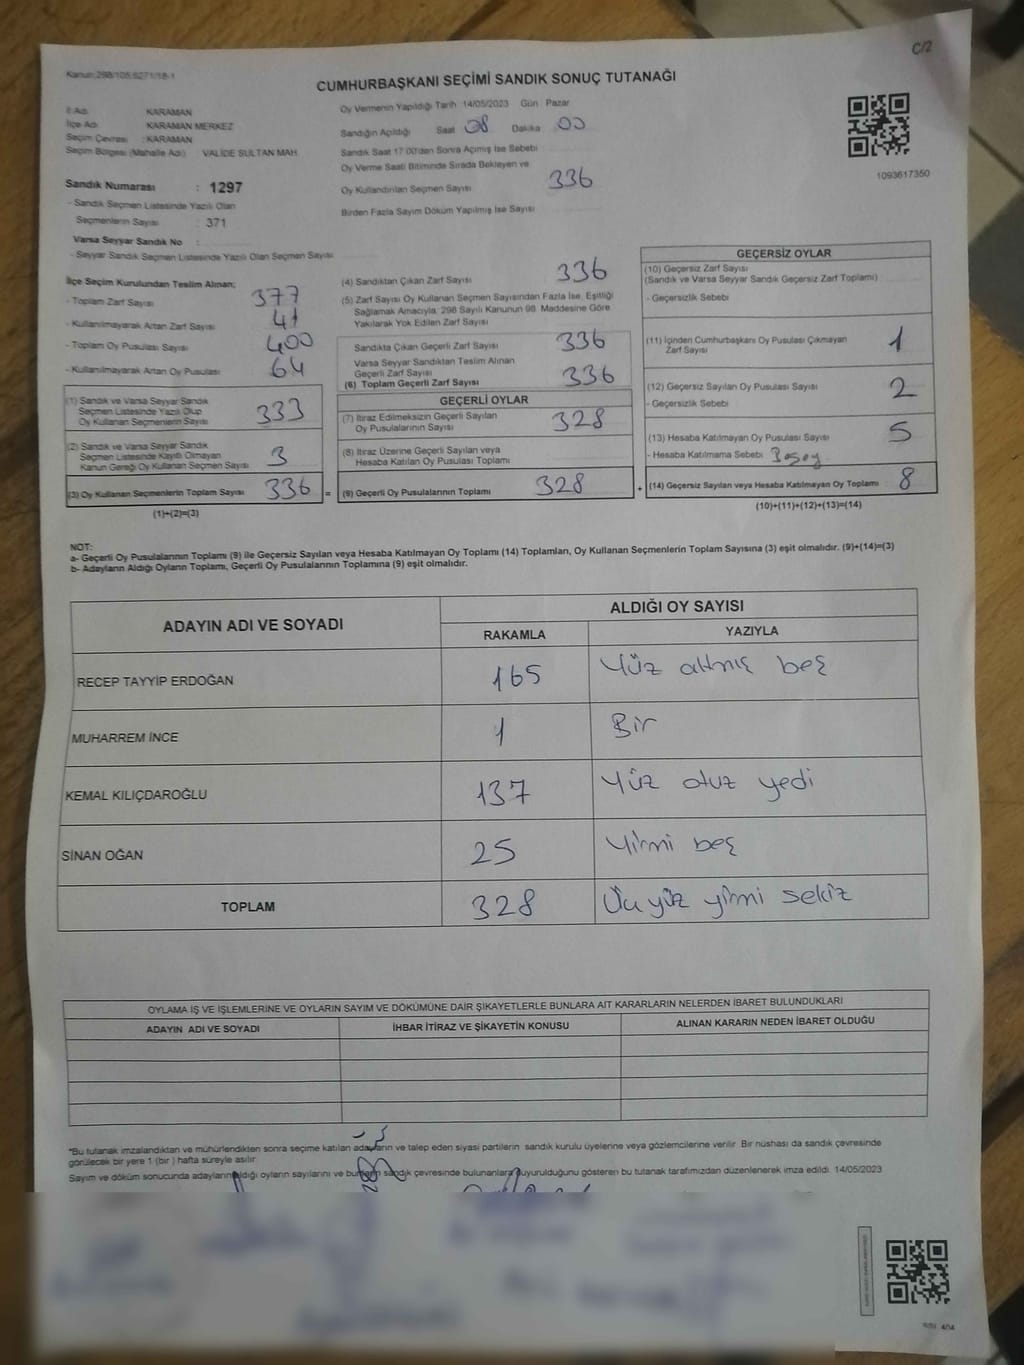 C/2
Kanun:298/105.6271/18-1
CUMHURBAŞKANI SEÇİMİ SANDIK SONUÇ TUTANAĞI
İl Adı KARAMAN
İlçe Adı KARAMAN MERKEZ
Seçim Çevresi : KARAMAN
Seçim Bölgesi (Mahalle Adı) VALİDE SULTAN MAH.
Sandık Numarası : 1297
- Sandık Seçmen Listesinde Yazılı Olan
Seçmenlerin Sayısı : 371
Varsa Seyyar Sandık No :
- Seyyar Sandık Seçmen Listesinde Yazılı Olan Seçmen Sayısı
Oy Vermenin Yapıldığı Tarih 14/05/2023 Gün Pazar
Sandığın Açıldığı Saat 08 Dakika 00
Sandık Saat 17.00'den Sonra Açımış İse Sebebi
Oy Verme Saati Bitiminde Sırada Bekleyen ve
Oy Kullandırılan Seçmen Sayısı 336
Birden Fazla Sayım Döküm Yapılmış İse Sayısı
1093617350
İlçe Seçim Kurulundan Teslim Alınan;
- Toplam Zarf Sayısı 377
- Kullanılmayarak Artan Zarf Sayısı 41
- Toplam Oy Pusulası Sayısı 400
- Kullanılmayarak Artan Oy Pusulası 64
(1) Sandık ve Varsa Seyyar Sandık
Seçmen Listesinde Yazılı Olup
Oy Kullanan Seçmenlerin Sayısı 333
(2) Sandık ve Varsa Seyyar Sandık
Seçmen Listesinde Kayıtlı Olmayan
Kanun Gereği Oy Kullanan Seçmen Sayısı 3
(3) Oy Kullanan Seçmenlerin Toplam Sayısı 336 =
(1)+(2)=(3)
(4) Sandıktan Çıkan Zarf Sayısı 336
(5) Zarf Sayısı Oy Kullanan Seçmen Sayısından Fazla İse, Eşitliği
Sağlamak Amacıyla, 298 Sayılı Kanunun 98. Maddesine Göre
Yakılarak Yok Edilen Zarf Sayısı
Sandıkta Çıkan Geçerli Zarf Sayısı 336
Varsa Seyyar Sandıktan Teslim Alınan
Geçerli Zarf Sayısı
(6) Toplam Geçerli Zarf Sayısı 336
GEÇERLİ OYLAR
(7) İtiraz Edilmeksizin Geçerli Sayılan
Oy Pusulalarının Sayısı 328
(8) İtiraz Üzerine Geçerli Sayılan veya
Hesaba Katılan Oy Pusulası Toplamı
(9) Geçerli Oy Pusulalarının Toplamı 328 +
GEÇERSİZ OYLAR
(10) Geçersiz Zarf Sayısı
(Sandık ve Varsa Seyyar Sandık Geçersiz Zarf Toplamı)
- Geçersizlik Sebebi
(11) İçinden Cumhurbaşkanı Oy Pusulası Çıkmayan
Zarf Sayısı 1
(12) Geçersiz Sayılan Oy Pusulası Sayısı 2
- Geçersizlik Sebebi
(13) Hesaba Katılmayan Oy Pusulası Sayısı 5
- Hesaba Katılmama Sebebi
(14) Geçersiz Sayılan veya Hesaba Katılmayan Oy Toplamı 8
(10)+(11)+(12)+(13)=(14)
NOT:
a- Geçerli Oy Pusulalarının Toplamı (9) ile Geçersiz Sayılan veya Hesaba Katılmayan Oy Toplamı (14) Toplamları, Oy Kullanan Seçmenlerin Toplam Sayısına (3) eşit olmalıdır. (9)+(14)=(3)
b- Adayların Aldığı Oyların Toplamı, Geçerli Oy Pusulalarının Toplamına (9) eşit olmalıdır.
ADAYIN ADI VE SOYADI ALDIĞI OY SAYISI
RAKAMLA YAZIYLA
RECEP TAYYİP ERDOĞAN 165 Yüz altmış beş
MUHARREM İNCE 1 Bir
KEMAL KILIÇDAROĞLU 137 Yüz otuz yedi
SİNAN OĞAN 25 Yirmi beş
TOPLAM 328 Üç yüz yirmi sekiz
OYLAMA İŞ VE İŞLEMLERİNE VE OYLARIN SAYIM VE DÖKÜMÜNE DAİR ŞİKAYETLERLE BUNLARA AİT KARARLARIN NELERDEN İBARET BULUNDUKLARI
ADAYIN ADI VE SOYADI İHBAR İTİRAZ VE ŞİKAYETİN KONUSU ALINAN KARARIN NEDEN İBARET OLDUĞU
*Bu tutanak imzalandıktan ve mühürlendikten sonra seçime katılan adayların ve talep eden siyasi partilerin sandık kurulu üyelerine veya gözlemcilerine verilir. Bir nüshası da sandık çevresinde
görülecek bir yere 1 (bir) hafta süreyle asılır.
Sayım ve döküm sonucunda adayların aldığı oyların sayılarını ve bunların sandık çevresinde bulunanlara duyurulduğunu gösteren bu tutanak tarafımızdan düzenlenerek imza edildi. 14/05/2023